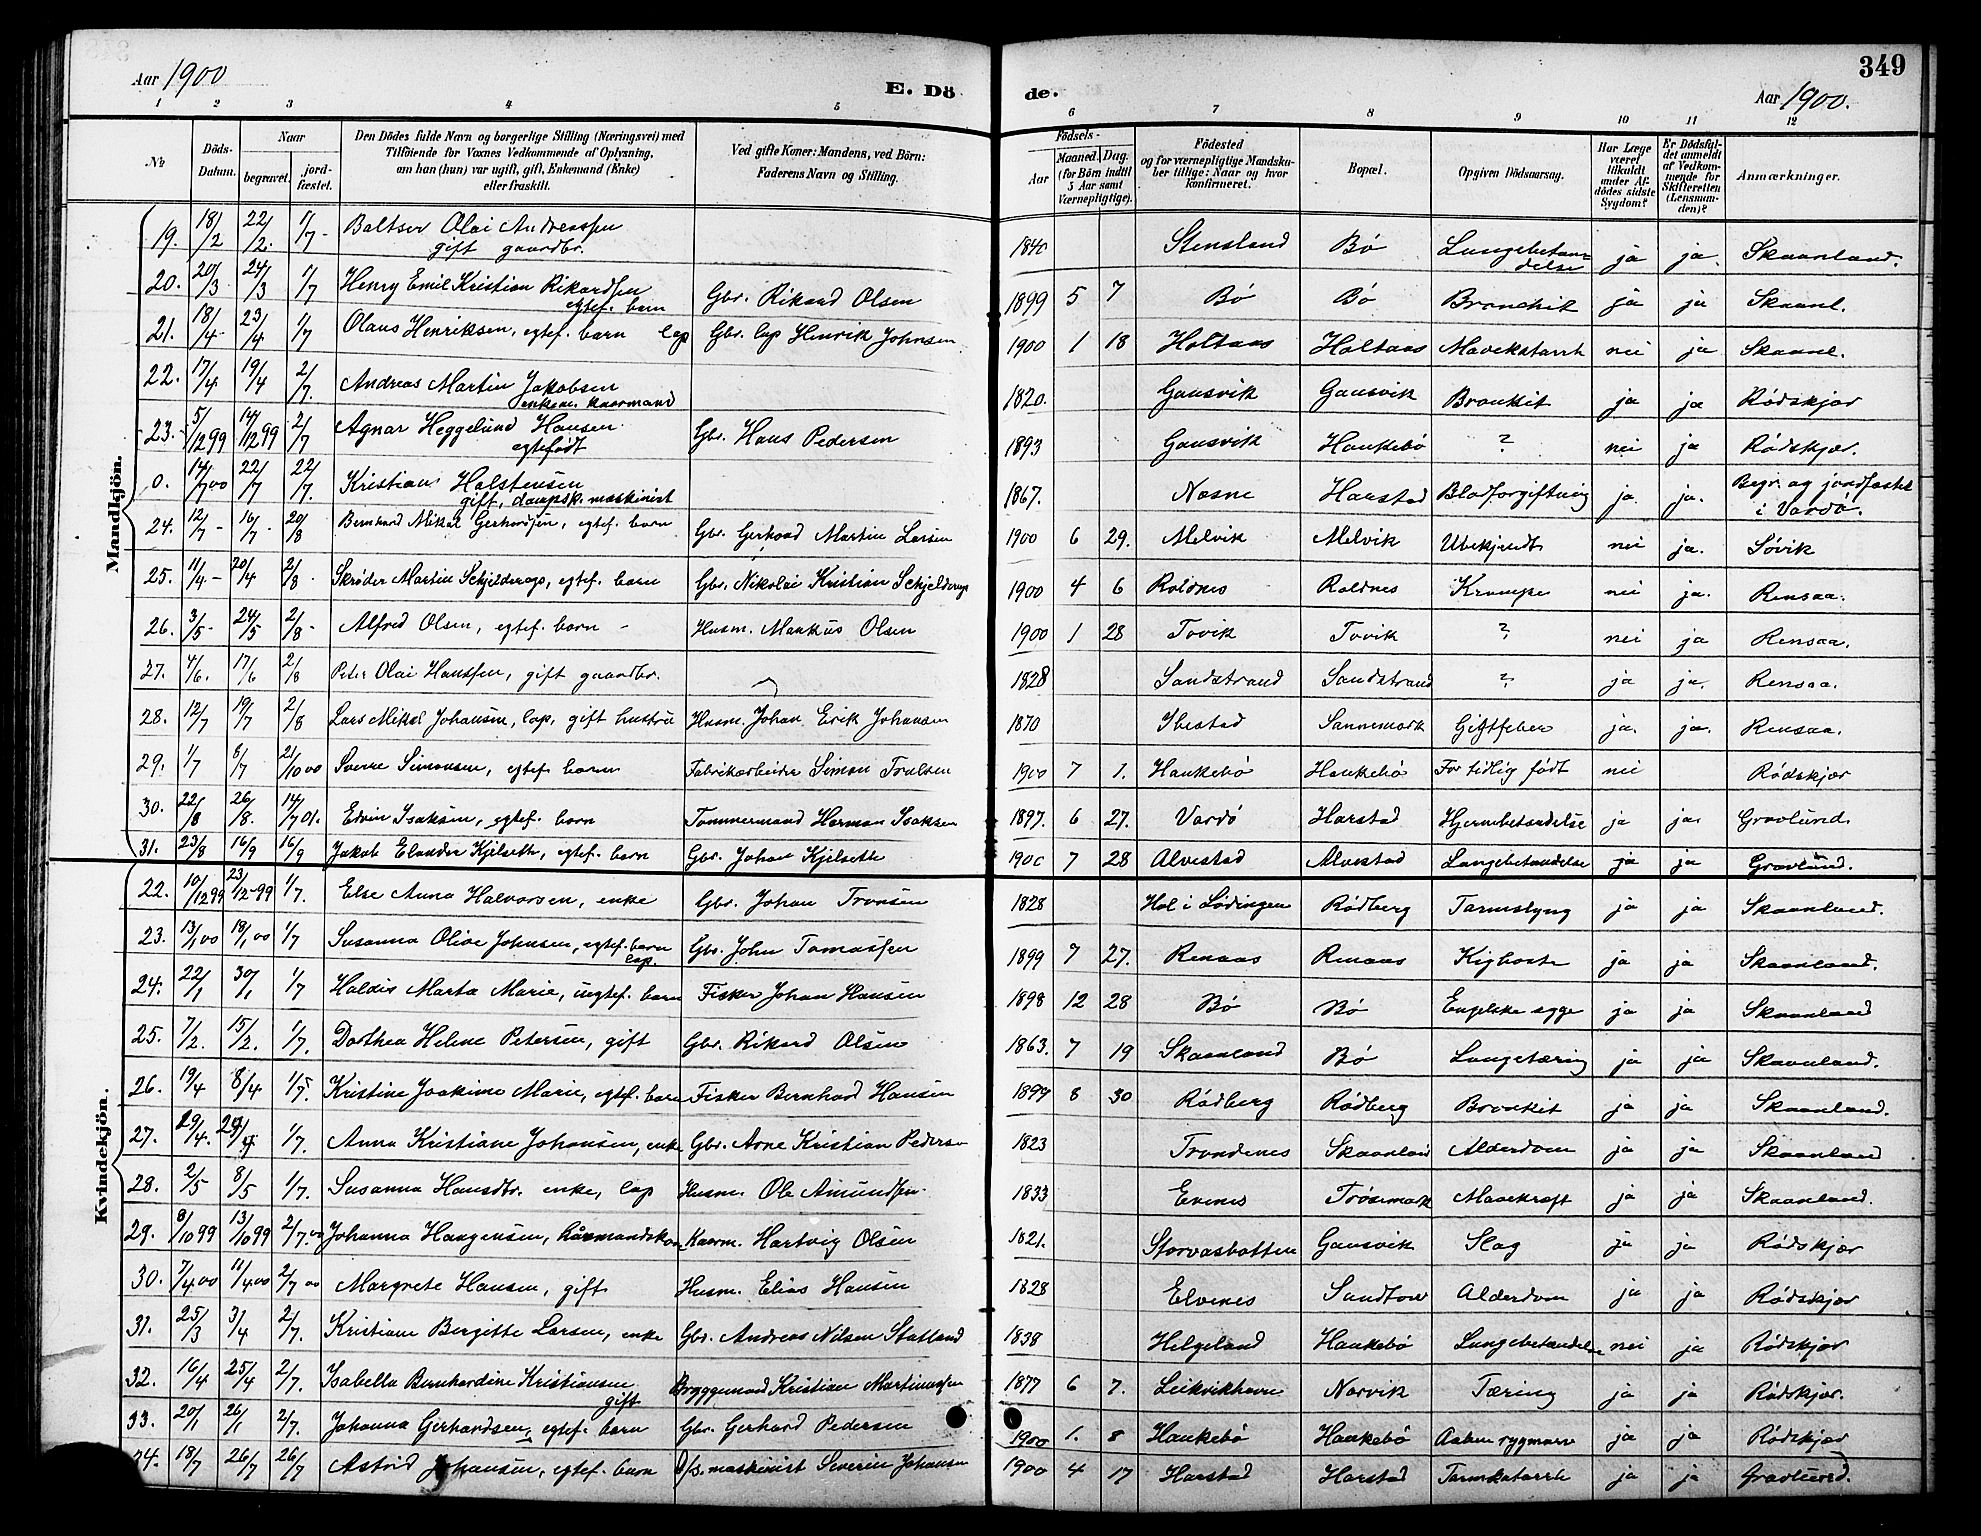 349
Aar 1900
E. Döde.
Aar 1900.
1 2 3 4 5 6 7 8 9 10 11 12
No
Döds-Datum.
Naar
begravet.
jordfæstet.
Den Dödes fulde Navn og borgerlige Stilling (Næringsvei) med
Tilföiende for Voxnes Vedkommende af Oplysning,
om han (hun) var ugift, gift, Enkemand (Enke)
eller fraskilt.
Ved gifte Koner: Mandens, ved Börn:
Faderens Navn og Stilling.
Födsels-
Aar
Maaned. Dag.
(for Börn indtil
5 Aar samt
Værnepligtige).
Födested
og for værnepligtige Mandsku-
ber tillige: Naar og hvor
konfirmeret.
Bopæl.
Opgiven Dödsaarsag.
Har Læge
været
tilkaldt
under Af-
dödes sidste
Sygdom?
Er Dödsfal-
det anmeldt
af Vedkom-
mende for
Skifteretten
(Lensman-
den)?
Anmærkninger.
Mandkjön.
19. 18/2 22/2. 1/7 - Baltser Olai Andreassen gift gaardbr. 1840 Stensland Bö Lungebetændelse ja ja. Skaanland.
20. 20/3 24/3 1/7 Henry Emil Kristian Rikardsen egtef. barn Gbr. Rikard Olsen 1899 5 7 Bö Bö Bronchit ja ja Skaanl.
21. 18/4- 23/4 1/7 Olaus Henriksen, egtef. barn lap Gbr. lap Henrik Johnsen 1900 1 18 Holtaas Holtaas Mavekatarrh nei ja Skaanl.
22. 17/4 19/4 2/7. Andreas Martin Jakobsen enkem. kaarmand 1820. Gausvik Gausvik Bronkit ja ja Rödskjær
23. 5/12 99 14/12 99 2/7 Agnar Heggelund Hansen egtefödt Gbr. Hans Pedersen 1893 Gausvik Haukebö ? nei ja Rödskjær.
0. 14/7 00 22/7 22/7. Kristians Holstensen gift, dampsk. maskinist 1867. Nesne Harstad Blodforgiftning ja. ja. Begr. og jordfæstet i Vardö.
24. 12/7- 16/7- 20/8 Bernhard Mikal Gerhardsen, egtef. barn Gbr. Gerhard Martin Larsen 1900 6 29. Melvik Melvik Ubekjendt nei ja. Sövik
25. 11/4- 20/4 2/8. Skröder Martin Schjelderup, egtef. barn Gbr. Nikolai Kristian Schjelderup 1900 4 6 Roldnes Roldnes Krampe nei ja. Rensaa.
26. 3/5- 24/5 2/8- Alfred Olsen, egtef. barn - Husm. Markus Olsen 1900 1 28 Tovik Tovik ? nei ja Rensaa.
27. 4/6. 17/6 2/8 Peter Olai Hanssen, gift gaardbr. 1828 Sandstrand Sandstrand ? ja ja. Rensaa.
28. 12/7 19/7 2/8 Lars Mikal Johansen, lap, gift hustru Husm. Johan Erik Johansen 1870 Ibestad Sannemark Gigtfeber ja. ja. Rensaa.
29. 1/7 8/7 21/10 00 Sverre Simonsen, egtef. barn Fabrikarbeider Simon Trulsen 1900 7 1. Haukebö Haukebö For tidlig födt nei Rödskjær
30. 22/8 26/8. 14/7 01. Edvin Isaksen, egtef. barn Tömmermand Herman Isaksen 1897. 6 27. Vardö Harstad Hjernebetændelse ja ja. Gravlund.
31. 23/8 16/9 16/9 Jakob Elander Kjelseth, egtef. barn Gbr. Johan Kjelseth 1900 7 28 Alvestad Alvestad Lungebetændelse ja ja Gravlund.
Kvindekjön.
22. 10/12 99 23/12 99 1/7. Else Anna Halvorsen, enke Gbr. Johan Tronsen 1828 Hol i Lödingen Rödberg Tarmslyng ja ja Skaanland.
23. 13/1 00 18/1 00 1/7 Susanna Olive Johnsen, egtef. barn lap. Gbr. John Tomassen 1899 7 27. Renaas Renaas Kighoste ja ja Skaanland.
24. 22/1 30/1 1/7 Haldis Marta Marie, uegtef. barn Fisker Johan Hansen 1898 12 28 Bö Bö Engelske syge ja ja Skaanland
25. 7/2. 15/2. 1/7. Dorthea Helene Petersen, gift Gbr. Rikard Olsen 1863. 7 19 Skaanland Bö Lungetæring ja ja Skaanland.
26. 19/4 8/4 1/7. Kristine Joakime Marie, egtef. barn Fisker Bernhard Hansen 1899 8 30 Rödberg Rödberg Bronkit ja ja Skaanland.
27. 29/4. 29/4 1/7. Anna Kristiane Johansen, enke Gbr. Arne Kristian Peders 1823 Trondenes Skaanland Alderdom ja ja Skaanland
28. 2/5 8/5 1/7. Susanna Hansdtr. enke, lap Husm. Ole Amundsen 1833 Evenes Trössemark Mavekræft ja ja Skaanland.
29. 8/10 99 13/10 99 2/7. 00 Johanna Haagensen, kaarmandskone Kaarm. Hartvig Olsen 1821. Storvasbotten Gausvik Slag ja ja Rödskjær
30. 7/4 00 11/4 00 2/7 00 Margrete Hansen, gift Husm. Elias Hansen 1828 Elvenes Sandtorv Alderdom ja ja Rödskjær
31. 25/3 3/4 2/7. Kristiane Bergitte Larsen, enke Gbr. Andreas Nilsen Statland 1838 Helgeland Haukebö Lungebetændelse nei ja Rödskjær
32. 16/4 25/4 2/7. Isabella Bernhardine Kristiansen gift Bryggemand Kristian Martinussen 1877 6 7. Leikvikhavn Narvik Tæring ja ja Rödskjær.
33. 20/1 26/1 2/7. Johanna Gerhardsen, egtef. barn Gbr. Gerhard Pedersen 1900 1. 8 Haukebö Haukebö Aaben rygmarv ja ja Rödskjær
34. 18/7 26/7 26/7 Astrid Johansen, egtef. barn D/s. maskinist Severin Johansen 1900 4 17 Harstad Harstad Tarmkatarrh ja ja Gravlund.